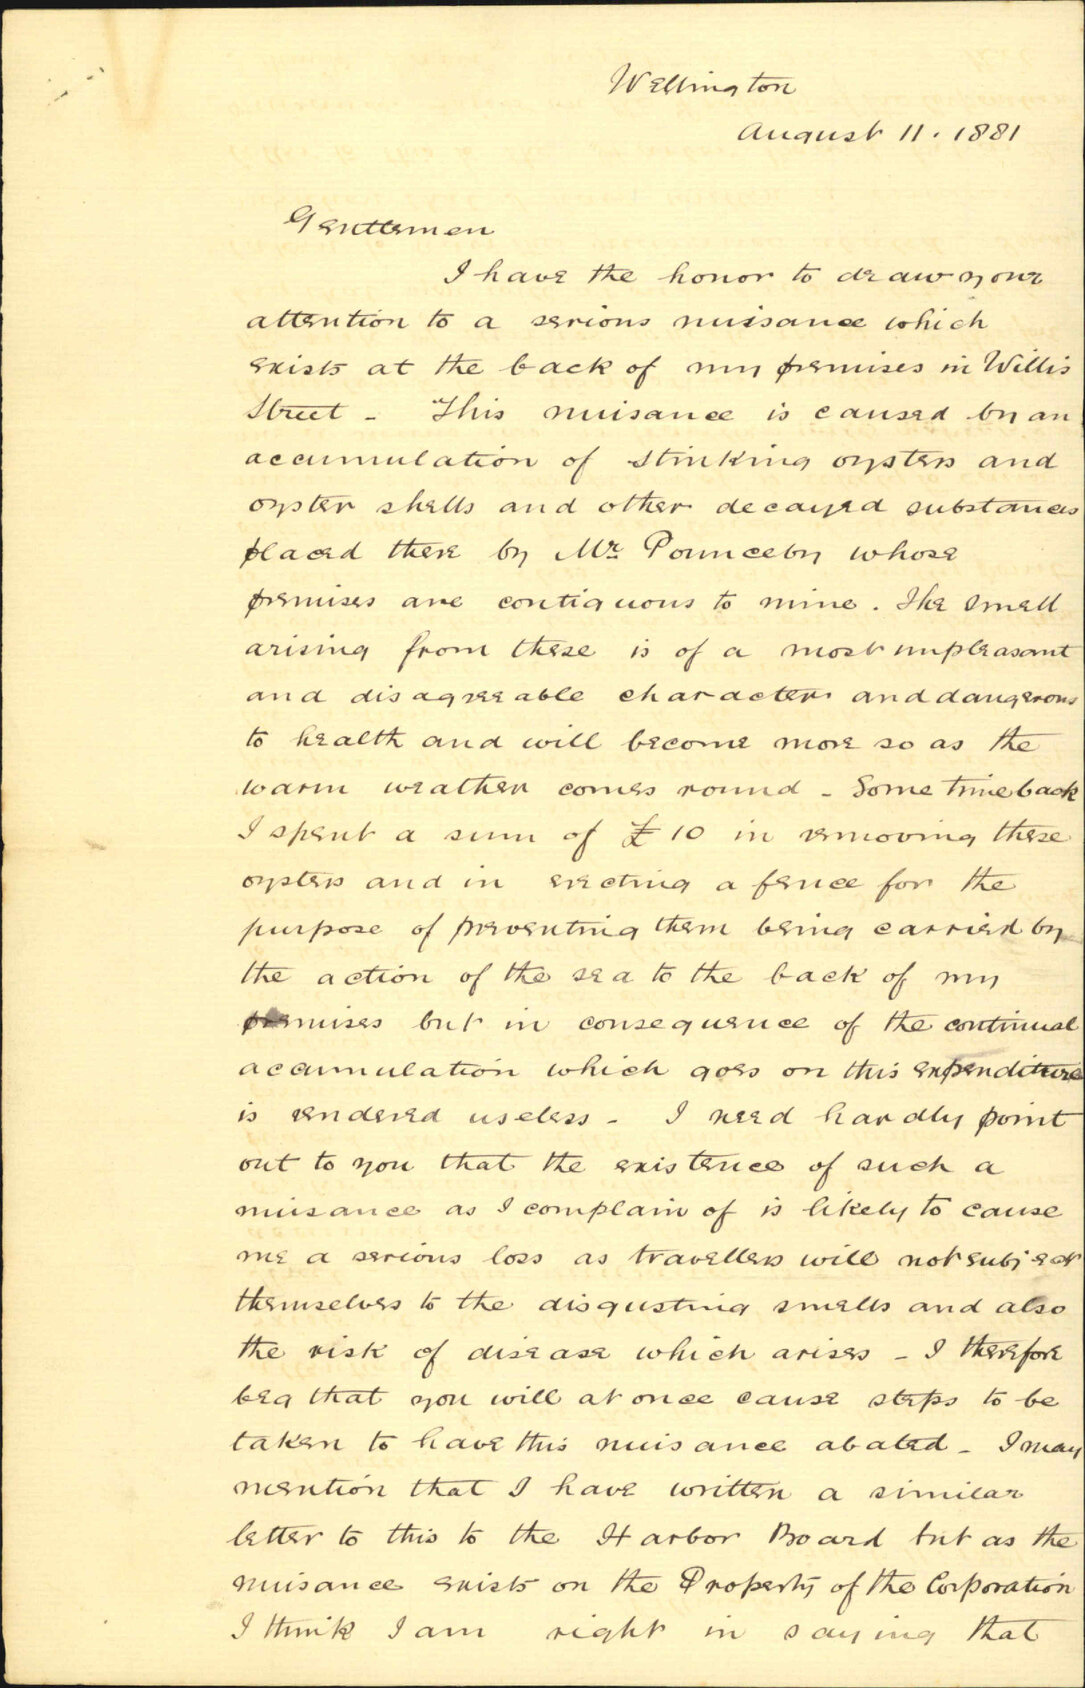 Wellington
August 11. 1881
Gentlemen
I have the honor to draw your
attention to a serious nuisance which
exists at the back of my premises in Willis
Street - This nuisance is caused by an
accumulation of stinking oysters and
oyster shells and other decayed substances
placed there by Mr Pounceby whose
premises are contiguous to mine. The smell
arising from these is of a most unpleasant
and disagreeable character and dangerous
to health and will become more so as the
warm weather comes round - Some time back
I spent a sum of £10 in removing these
oysters and in erecting a fence for the
purpose of preventing them being carried by
the action of the sea to the back of my
premises but in consequence of the continual
accumulation which goes on this expenditure
is rendered useless - I need hardly point
out to you that the existence of such a
nuisance as I complain of is likely to cause
me a serious loss as travellers will not subject
themselves to the disgusting smells and also
the risk of disease which arises - I therefore
beg that you will at once cause steps to be
taken to have this nuisance abated - I may
mention that I have written a similar
letter to this to the Harbor Board but as the
nuisance exists on the Property of the Corporation
I think I am right in saying that